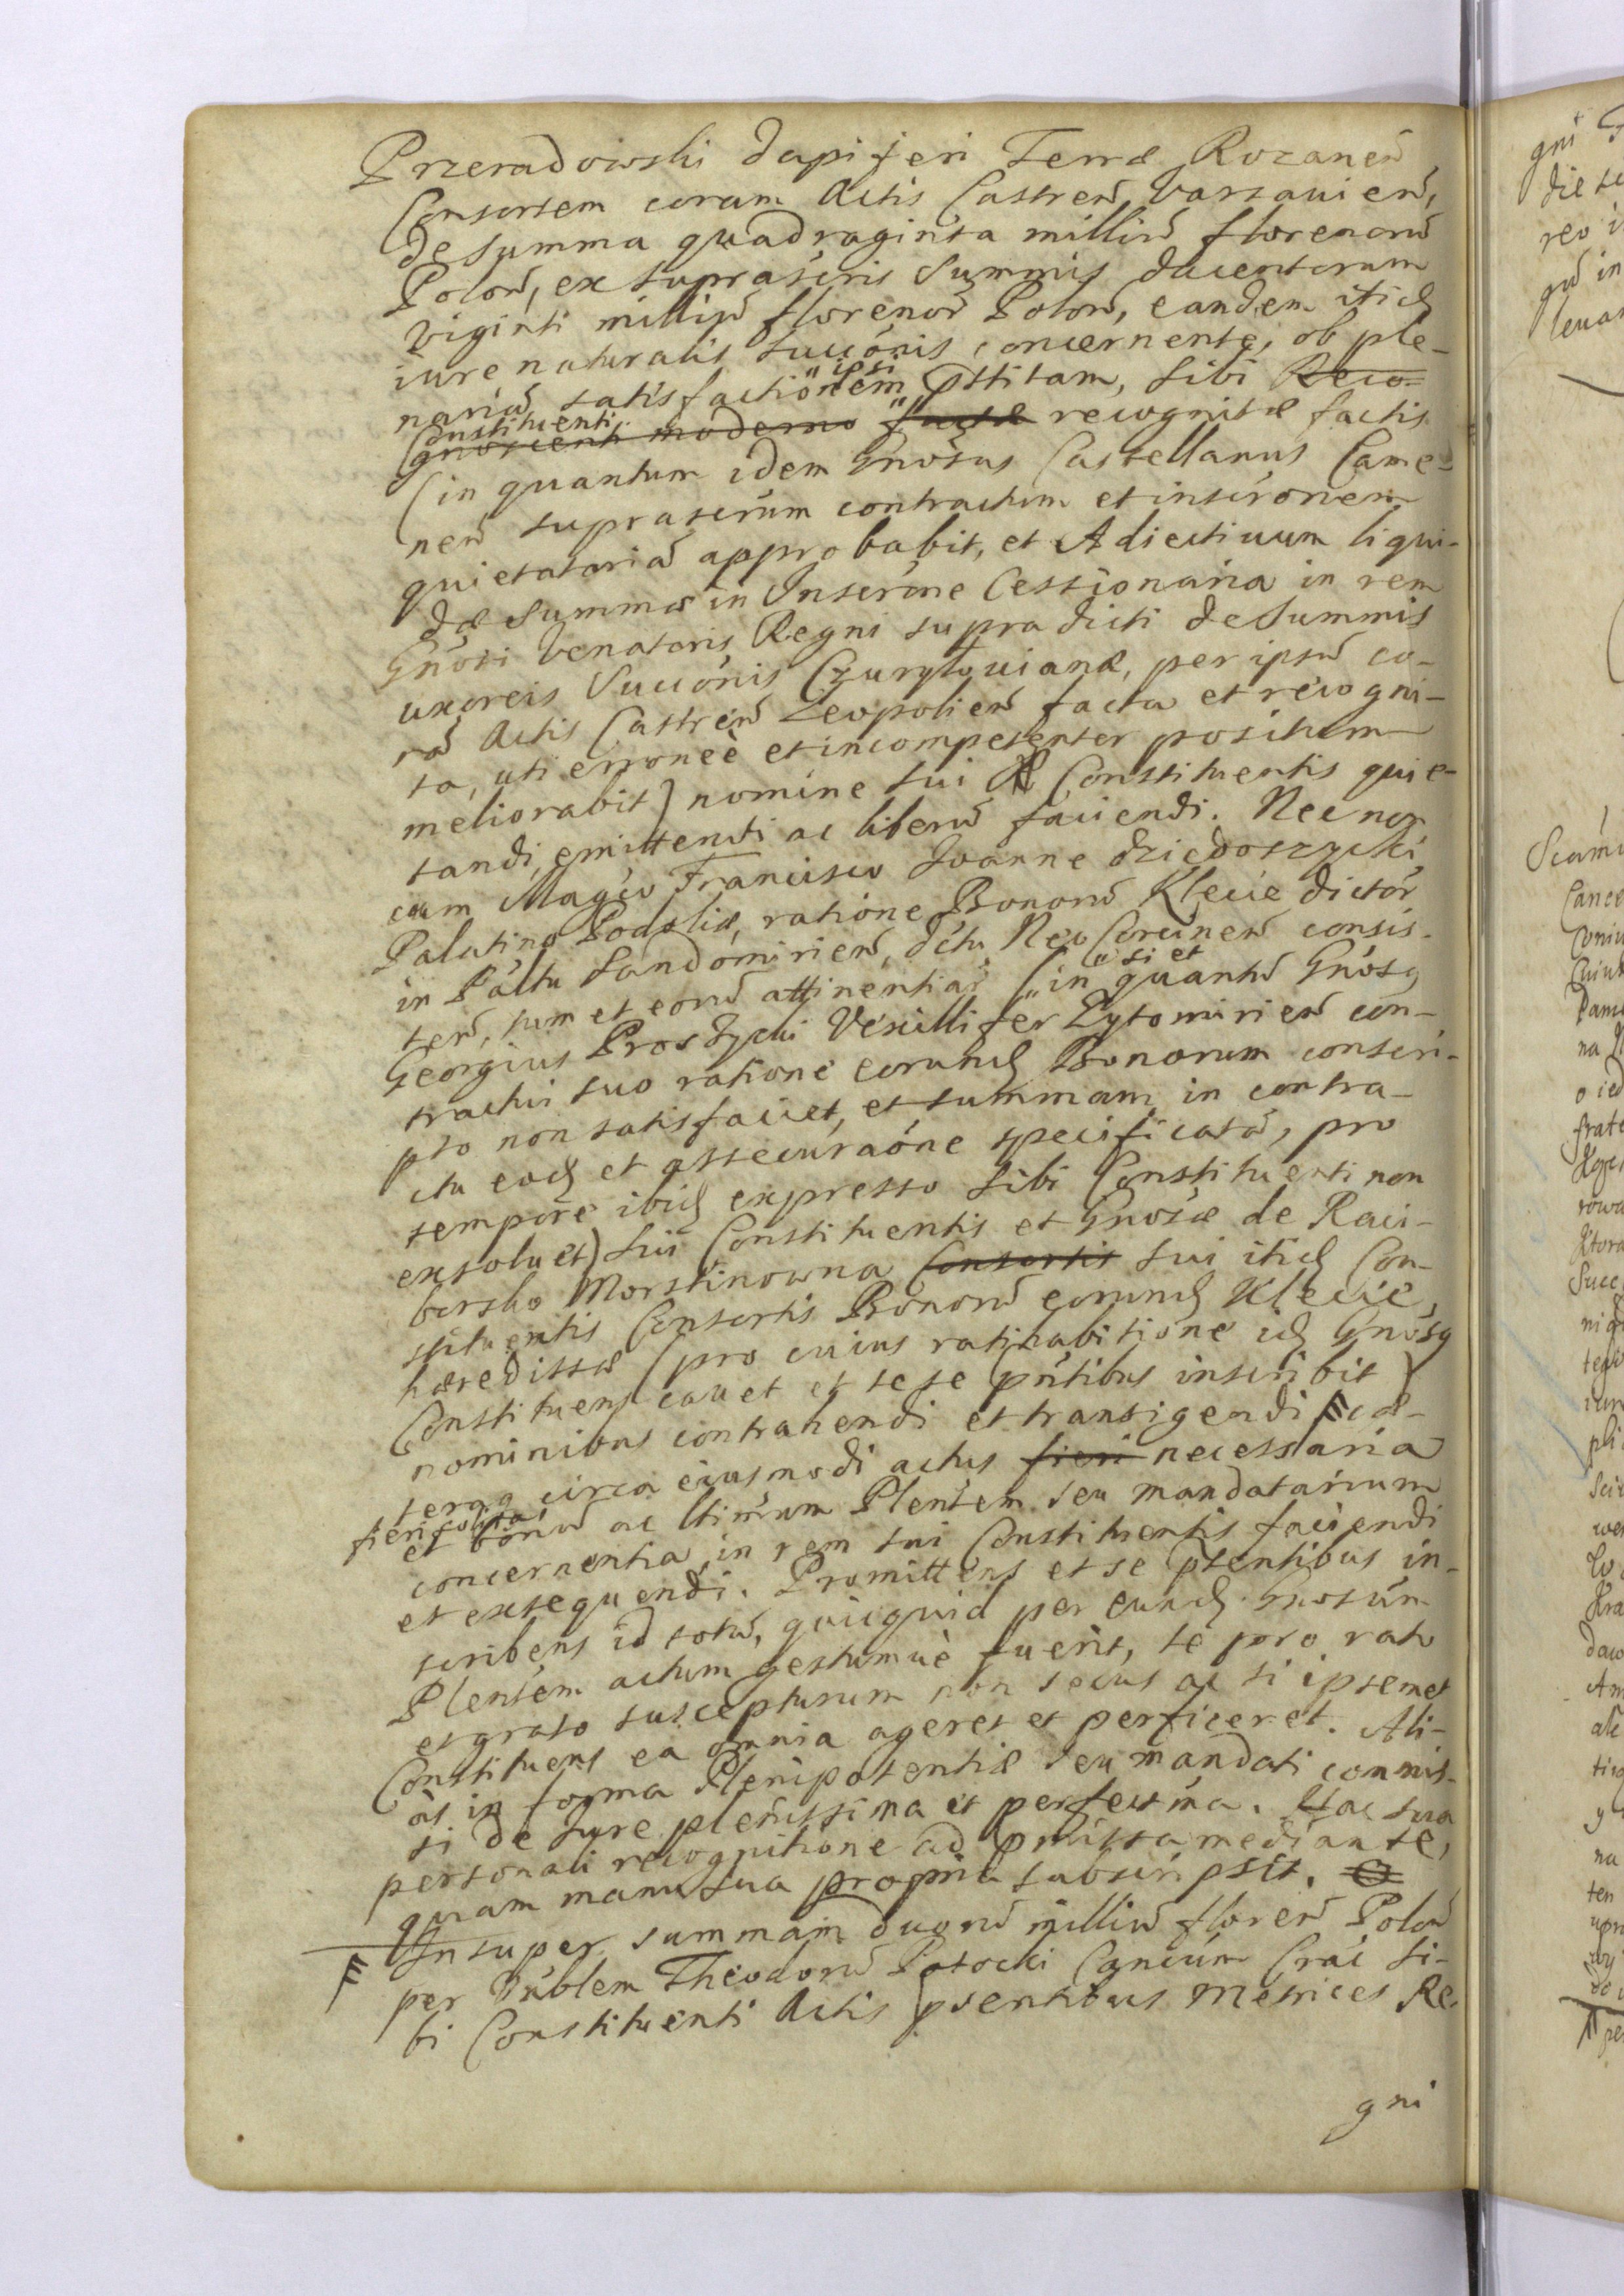 Przeradowski dapiferi Terræ Rozanen̄
Consortem coram Actis Castren̄ Varsavien̄,
de summa quadraginta milliū florenorū
Polon̄, ex suprascris Summis ducentorum
viginti milliū florenor̄ Polon̄, eandem itid
iure naturalis succónis concernente, ob ple-
nariā satisfactionem " ipsi pstitam, sibi Reco-
gnoscenti moderno Constituenti " factæ recognitæ factis
(in quantum idem Gnosus Castellanus Came-
nen̄ suprascrúm contractum et inscrónem
quietatoriā approbabit, et Adiectivum liqui-
dæ Summæ in Inscróne Cessionaria in rem
Gnósi Venatoris Regni supradicti de Summis
uxoreis Succónis Czuryłovianæ, per ipsū co-
rā Actis Castren̄ Leopolien̄ facta et recogni-
ta, uti erroneè et incompetenter positum
meliorabit) nomine sui Constituentis quie-
tandi, emittendi ac liberū faciendi. Nec non
cum Magco Francisco Joanne Dzieduszycki
Palatino Podoliæ, ratione Bonorū Klecie dictor̄
in Páltu Sandomirien̄, dctu Neo Corcinen̄ consis-
ten̄, tum et eorū attinentiar̄ (in " si et quantū Gnósq
Georgius Proszycki Vexillifer Zytomirien̄ con-
tractui suo ratione eorund Bonorum conscri-
pto non satisfaciet, et summam in contra-
ctu eod et assecuraóne specificatā, pro
tempore ibid expresso sibi Constituenti non
exsolvet) sui Constituentis et Gnósæ de Raci-
borsko Morstinowna Consortis sui itid Con-
stituentis Consortis Bonorū eorund Klecie
hæredissæ (pro cuius ratihabitione id Gnósq
Constituens cavet et sese pntibus inscribit)
nominibus contrahendi et transigendi cæ-
teraq circa eiusmodi actus fieri necessaria
fieri solita
et bonū ac ltimum Plentem seu mandatarium
concernentia in rem sui Constituentis faciendi
et exsequendi. Promittens et se pśentibus in-
scribens id totū, quicquid per eund Gnosúm
Plentem actum gestumvè fuerit, se pro rato
et grato suscepturum non secus ac si ipsemet
Constituens ea omnia ageret et perficeret. Ali-
às in forma Plenipotentiæ seu mandati commis-
si de Jure plenissima et perfectma. Hac sua
personali recognitione ad pmissa mediante,
quam manu sua propria subscripsit.
Insuper summam duorū milliū floren̄ Polon̄
per Illublem Theodorū Potocki Cancúm Crac si-
bi Constituenti Actis psentibus Metrices Re-
gni